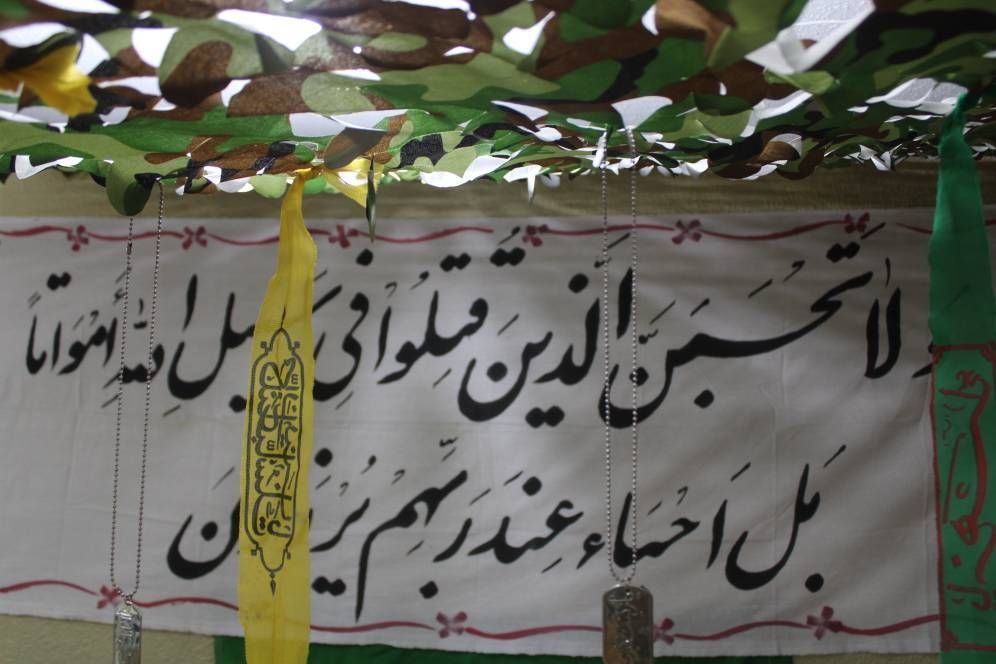 وَلاٰ تَحْسَبَنَّ الَّذینَ قُتِلُوا فی سَبیلِ اللهِ أَمْوَاتاً
بَل اَحْیٰاء عِنْدَ رَبِّهِمْ یُرْزَقُون